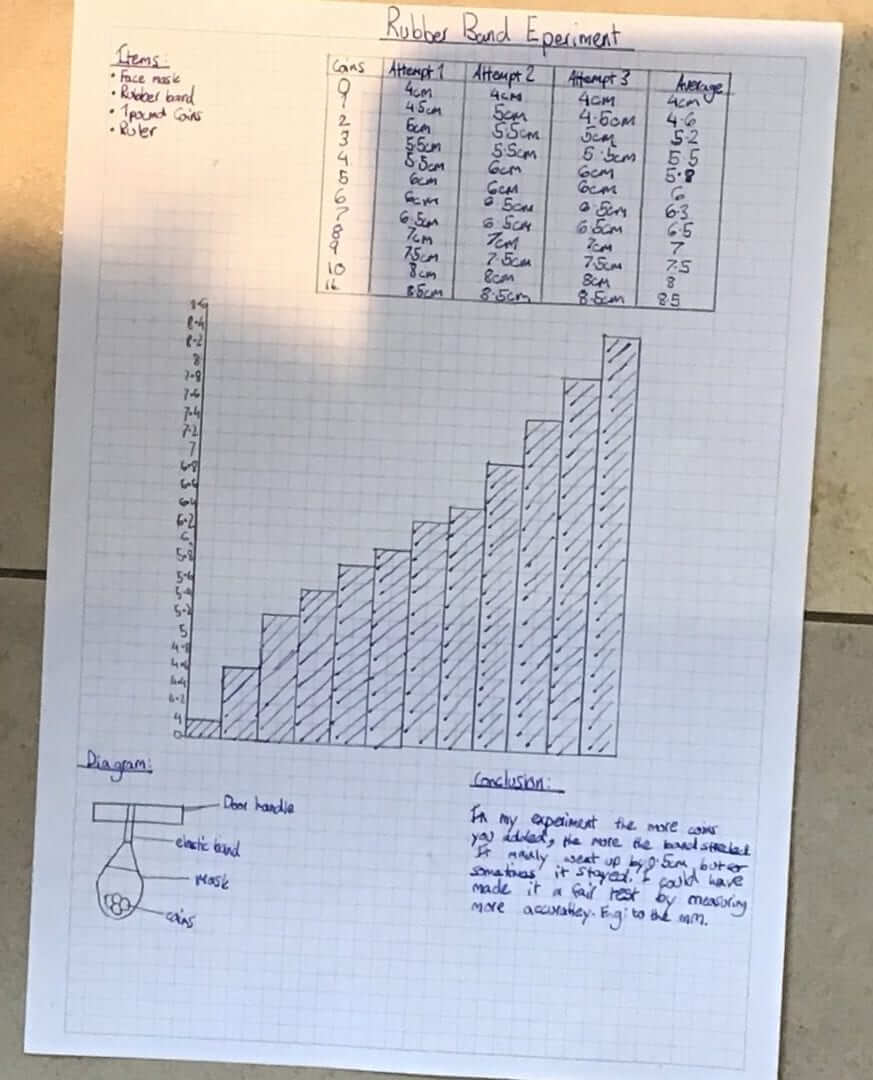 Rubber Band Eperiment
Items:
• Face mask
• Rubber band
• 1 pound coins
• Ruler
Coins Attempt 1 Attempt 2 Attempt 3 Average
0 4cm 4cm 4cm 4cm
1 4.5cm 5cm 4.5cm 4.6
2 5cm 5.5cm 5cm 5.2
3 5.5cm 5.5cm 5.5cm 5.5
4 5.5cm 6cm 6cm 5.8
5 6cm 6cm 6cm 6
6 6cm 6.5cm 6.5cm 6.3
7 6.5cm 6.5cm 6.5cm 6.5
8 7cm 7cm 7cm 7
9 7.5cm 7.5cm 7.5cm 7.5
10 8cm 8cm 8cm 8
8.5cm 8.5cm 8.5cm 8.5
8.6
8.4
8.2
8
7.8
7.6
7.4
7.2
7
6.8
6.6
6.4
6.2
6
5.8
5.6
5.4
5.2
5
4.8
4.6
4.4
4.2
4
0
Diagram:
Door handle
elastic band
Mask
coins
Conclusion:
In my experiment the more coins
you added, the more the band
It mainly went up by 0.5cm, but
sometimes it stayed. I could have
made it a fair test by measuring
more accuratley. E.g: to the mm.